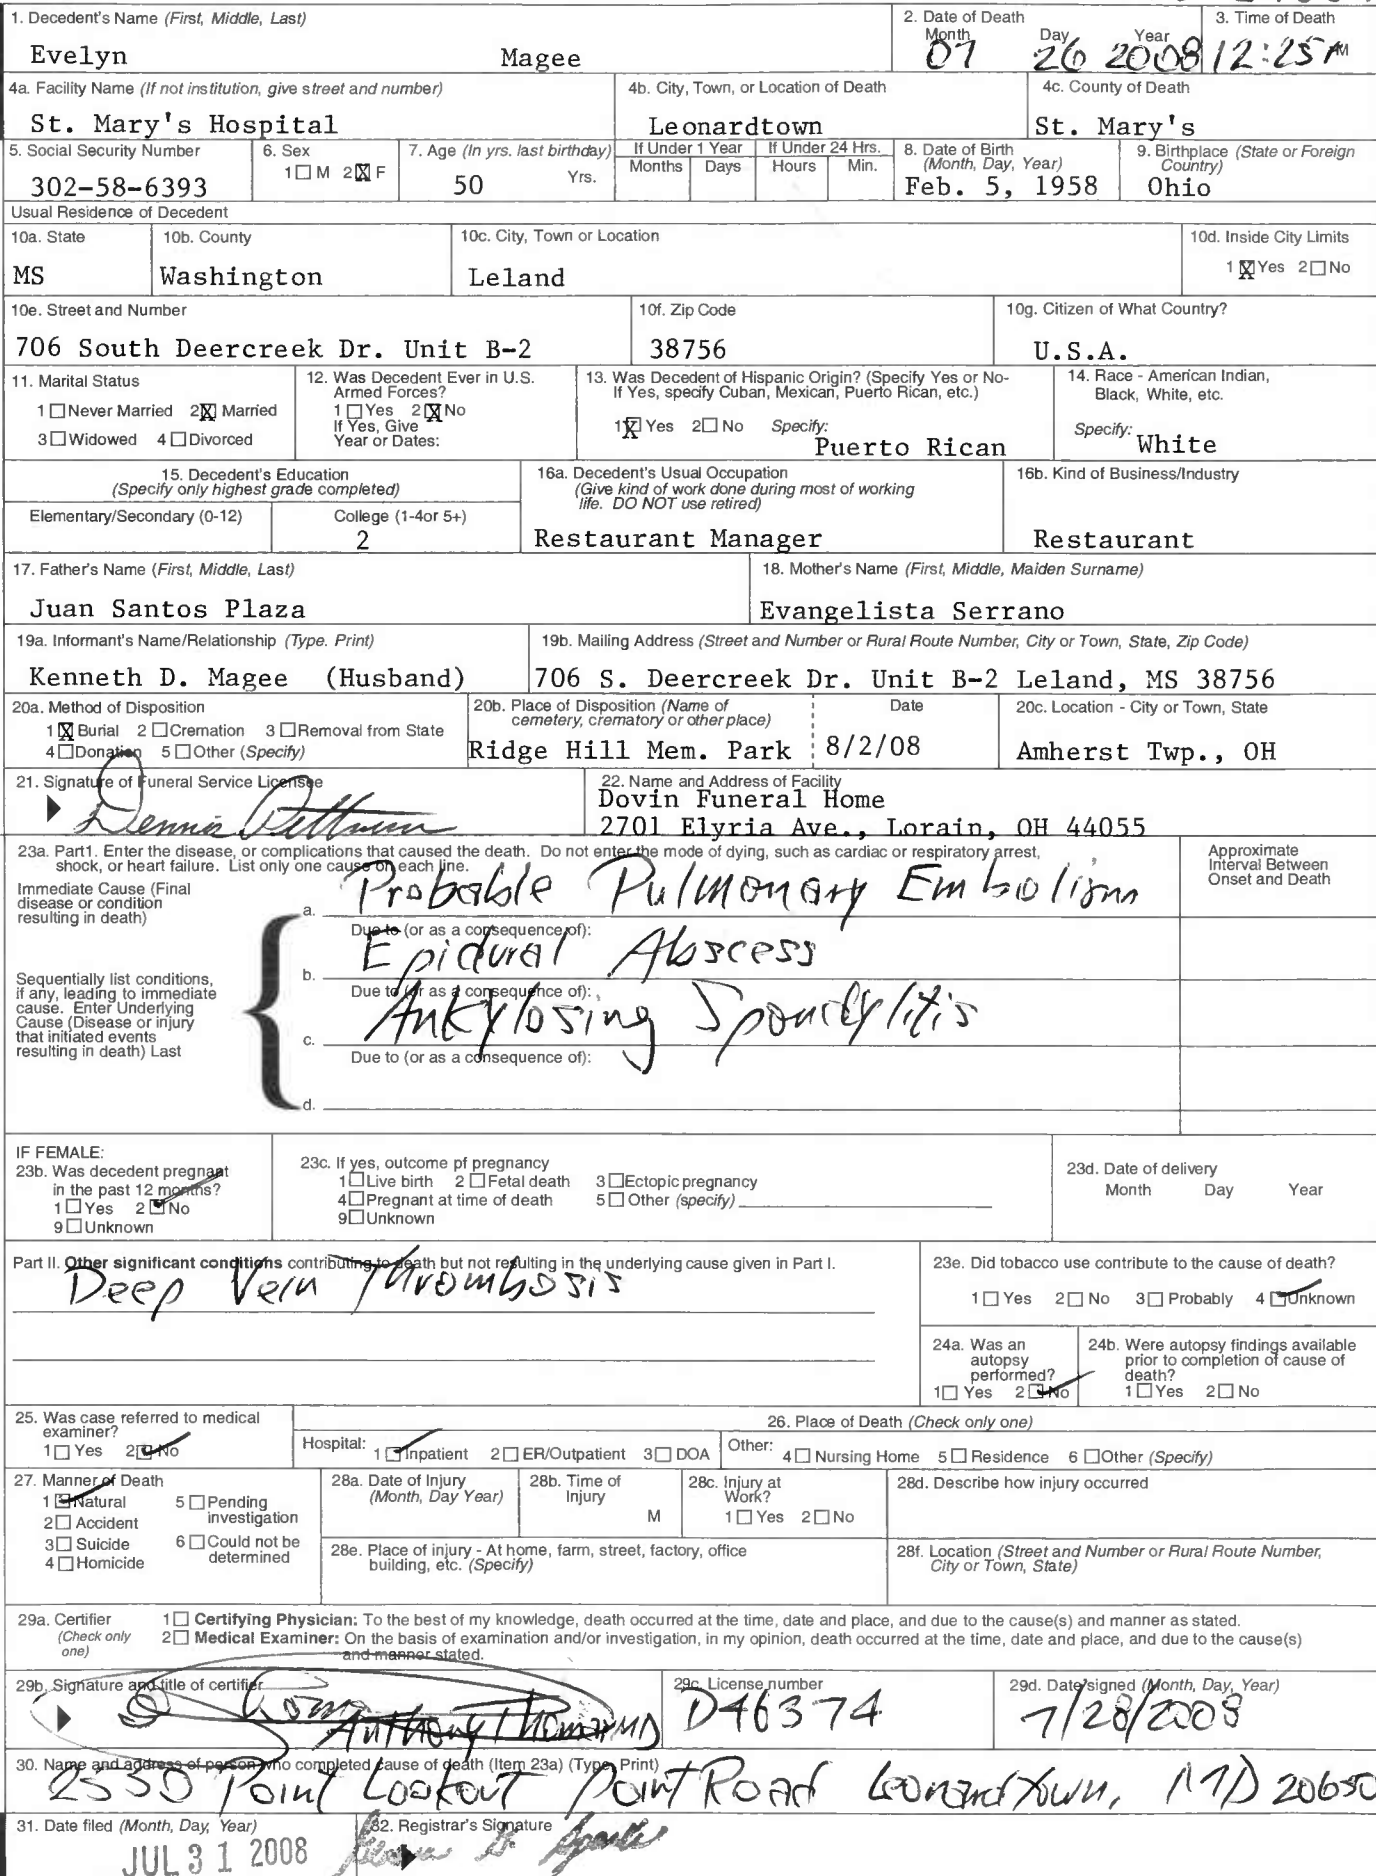 1. Decedent's Name (First, Middle, Last)
Evelyn Magee
2. Date of Death
Month Day Year
07 26 2008
3. Time of Death
12:25 AM
4a. Facility Name (If not institution, give street and number)
St. Mary's Hospital
4b. City, Town, or Location of Death
Leonardtown
4c. County of Death
St. Mary's
5. Social Security Number
302-58-6393
6. Sex
1 M 2 X F
7. Age (In yrs. last birthday)
50 Yrs.
If Under 1 Year
Months Days
If Under 24 Hrs.
Hours Min.
8. Date of Birth
(Month, Day, Year)
Feb. 5, 1958
9. Birthplace (State or Foreign
Country)
Ohio
Usual Residence of Decedent
10a. State
MS
10b. County
Washington
10c. City, Town or Location
Leland
10d. Inside City Limits
1 X Yes 2 No
10e. Street and Number
706 South Deercreek Dr. Unit B-2
10f. Zip Code
38756
10g. Citizen of What Country?
U.S.A.
11. Marital Status
1 Never Married 2 X Married
3 Widowed 4 Divorced
12. Was Decedent Ever in U.S.
Armed Forces?
1 Yes 2 X No
If Yes, Give
Year or Dates:
13. Was Decedent of Hispanic Origin? (Specify Yes or No-
If Yes, specify Cuban, Mexican, Puerto Rican, etc.)
1 X Yes 2 No Specify:
Puerto Rican
14. Race - American Indian,
Black, White, etc.
Specify: White
15. Decedent's Education
(Specify only highest grade completed)
Elementary/Secondary (0-12)
College (1-4or 5+)
2
16a. Decedent's Usual Occupation
(Give kind of work done during most of working
life. DO NOT use retired)
Restaurant Manager
16b. Kind of Business/Industry
Restaurant
17. Father's Name (First, Middle, Last)
Juan Santos Plaza
18. Mother's Name (First, Middle, Maiden Surname)
Evangelista Serrano
19a. Informant's Name/Relationship (Type. Print)
Kenneth D. Magee (Husband)
19b. Mailing Address (Street and Number or Rural Route Number, City or Town, State, Zip Code)
706 S. Deercreek Dr. Unit B-2 Leland, MS 38756
20a. Method of Disposition
1 X Burial 2 Cremation 3 Removal from State
4 Donation 5 Other (Specify)
20b. Place of Disposition (Name of
cemetery, crematory or other place)
Ridge Hill Mem. Park
Date
8/2/08
20c. Location - City or Town, State
Amherst Twp., OH
21. Signature of Funeral Service Licensee
Dennis
22. Name and Address of Facility
Dovin Funeral Home
2701 Elyria Ave., Lorain, OH 44055
23a. Part1. Enter the disease, or complications that caused the death. Do not enter the mode of dying, such as cardiac or respiratory arrest,
shock, or heart failure. List only one cause on each line.
Approximate
Interval Between
Onset and Death
Immediate Cause (Final
disease or condition
resulting in death)
a. Probable Pulmonary Embolism
Due to (or as a consequence of):
Sequentially list conditions,
if any, leading to immediate
cause. Enter Underlying
Cause (Disease or injury
that initiated events
resulting in death) Last
b. Epidural Abscess
Due to (or as a consequence of):
c. Ankylosing Spondylitis
Due to (or as a consequence of):
d.
IF FEMALE:
23b. Was decedent pregnant
in the past 12 months?
1 Yes 2 No
9 Unknown
23c. If yes, outcome pf pregnancy
1 Live birth 2 Fetal death 3 Ectopic pregnancy
4 Pregnant at time of death 5 Other (specify)
9 Unknown
23d. Date of delivery
Month Day Year
Part II. Other significant conditions contributing to death but not resulting in the underlying cause given in Part I.
Deep Vein Thrombosis
23e. Did tobacco use contribute to the cause of death?
1 Yes 2 No 3 Probably 4 Unknown
24a. Was an
autopsy
performed?
1 Yes 2 No
24b. Were autopsy findings available
prior to completion of cause of
death?
1 Yes 2 No
25. Was case referred to medical
examiner?
1 Yes 2 No
26. Place of Death (Check only one)
Hospital: 1 Inpatient 2 ER/Outpatient 3 DOA Other: 4 Nursing Home 5 Residence 6 Other (Specify)
27. Manner of Death
1 Natural 5 Pending
investigation
2 Accident
3 Suicide 6 Could not be
determined
4 Homicide
28a. Date of Injury
(Month, Day Year)
28b. Time of
Injury
M
28c. Injury at
Work?
1 Yes 2 No
28d. Describe how injury occurred
28e. Place of injury - At home, farm, street, factory, office
building, etc. (Specify)
28f. Location (Street and Number or Rural Route Number,
City or Town, State)
29a. Certifier
(Check only
one)
1 Certifying Physician: To the best of my knowledge, death occurred at the time, date and place, and due to the cause(s) and manner as stated.
2 Medical Examiner: On the basis of examination and/or investigation, in my opinion, death occurred at the time, date and place, and due to the cause(s)
and manner stated.
29b. Signature and title of certifier
Anthony Thomas MD
29c. License number
D46374
29d. Date signed (Month, Day, Year)
7/28/2008
30. Name and address of person who completed cause of death (Item 23a) (Type, Print)
Point Lookout Point Road Leonardtown, MD 20650
31. Date filed (Month, Day, Year)
JUL 31 2008
32. Registrar's Signature